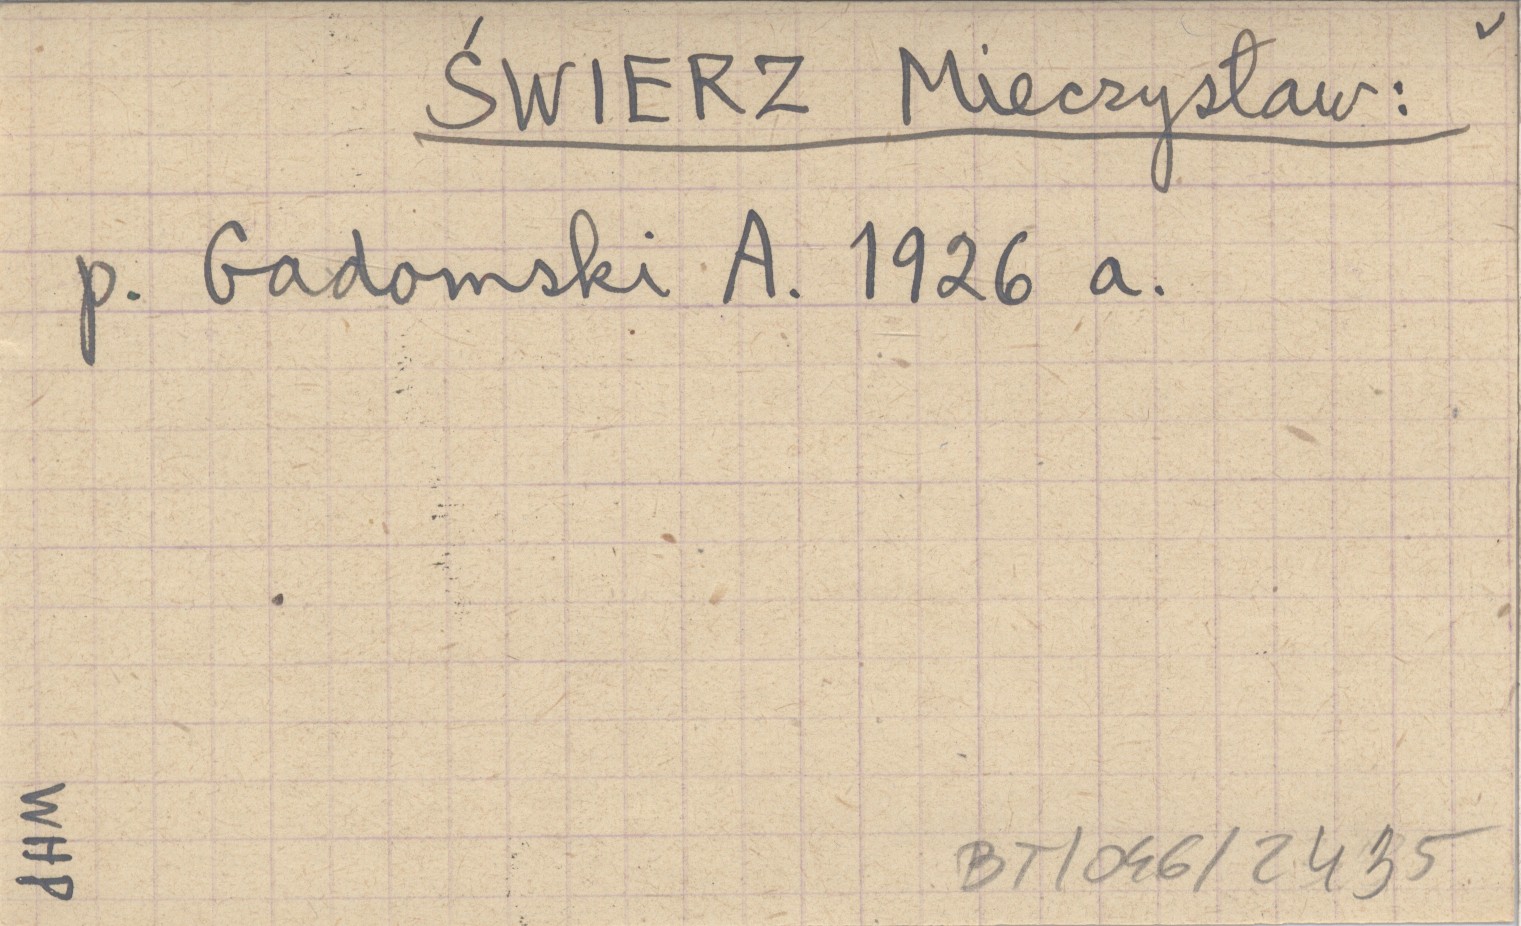 ŚWIERZ Mieczysław:
p. Gadomski A. 1926 a.
WHP
BT/046/2435